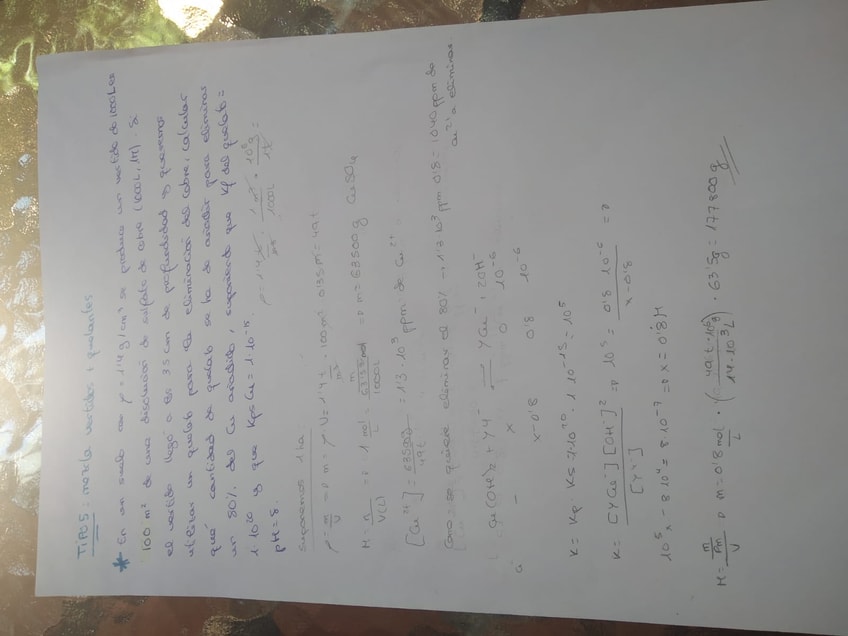 TIPO 5: mezcla vertidos + quelantes
* En un suelo con ρ = 1'4 g/cm³ se produce un vertido de 1000 L en
100 m² de una disolución de sulfato de cobre (1000 L, 1M). Si
el vertido llegó a los 35 cm de profundidad y queremos
utilizar un quelato para la eliminación del cobre, calcular
qué cantidad de quelato se ha de añadir para eliminar
un 80% del Cu añadido, suponiendo que Kf del quelato =
1·10²⁰ y que Kps Cu = 1·10⁻¹⁵.
pH = 8.
Suponemos 1 ha.
ρ = m/V => m = ρ·V = 1'4 t/m³ · 100 m² · 0'35 m = 49 t
M = n/V(L) => 1 mol/L = (m / 63'55 mol)/1000 L => m = 63500 g CuSO₄
[Cu²⁺] = 63500/49 t = 1'3·10³ ppm de Cu²⁺
Como se quiere eliminar el 80% → 1'3·10³ ppm · 0'8 = 1040 ppm de
Cu²⁺ a eliminar
Cu(OH)₂ + Y⁴⁻ YCu⁼ + 2OH⁻
- x 0 10⁻⁶
x-0'8 0'8 10⁻⁶
K = Kf · Ks = 1·10²⁰ · 1·10⁻¹⁵ = 10⁵
K = [YCu⁼][OH⁻]²/[Y⁴⁻] => 10⁵ = 0'8 · 10⁻⁶/x-0'8 =>
10⁵x - 8·10⁴ = 8·10⁻⁷ => x = 0'8 M
M = (m/Pm)/V m = 0'8 mol/L · (49 t · 10⁶ g/14·10³ L) · 63'5 g = 177800 g